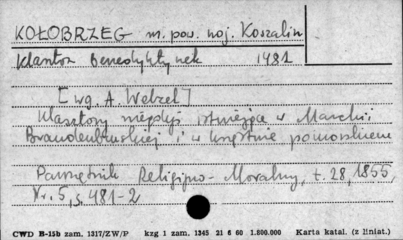 KOŁOBRZEG m. pow. woj. Koszalin
Klasztor benedyktynek 1481
[wg. A. Wetzel]
Klasztory niegdyś istniejące w Marchii
Brandenburskiej i w księstwie pomorskiem
Pamiętnik Religijno-Moralny, t. 28, 1855,
Nr. 5, s. 481-2
CWD B-15b zam. 1317/ZW/P kzg 1 zam. 1345 21 6 60 1.800.000 Karta katal. (z liniat.)